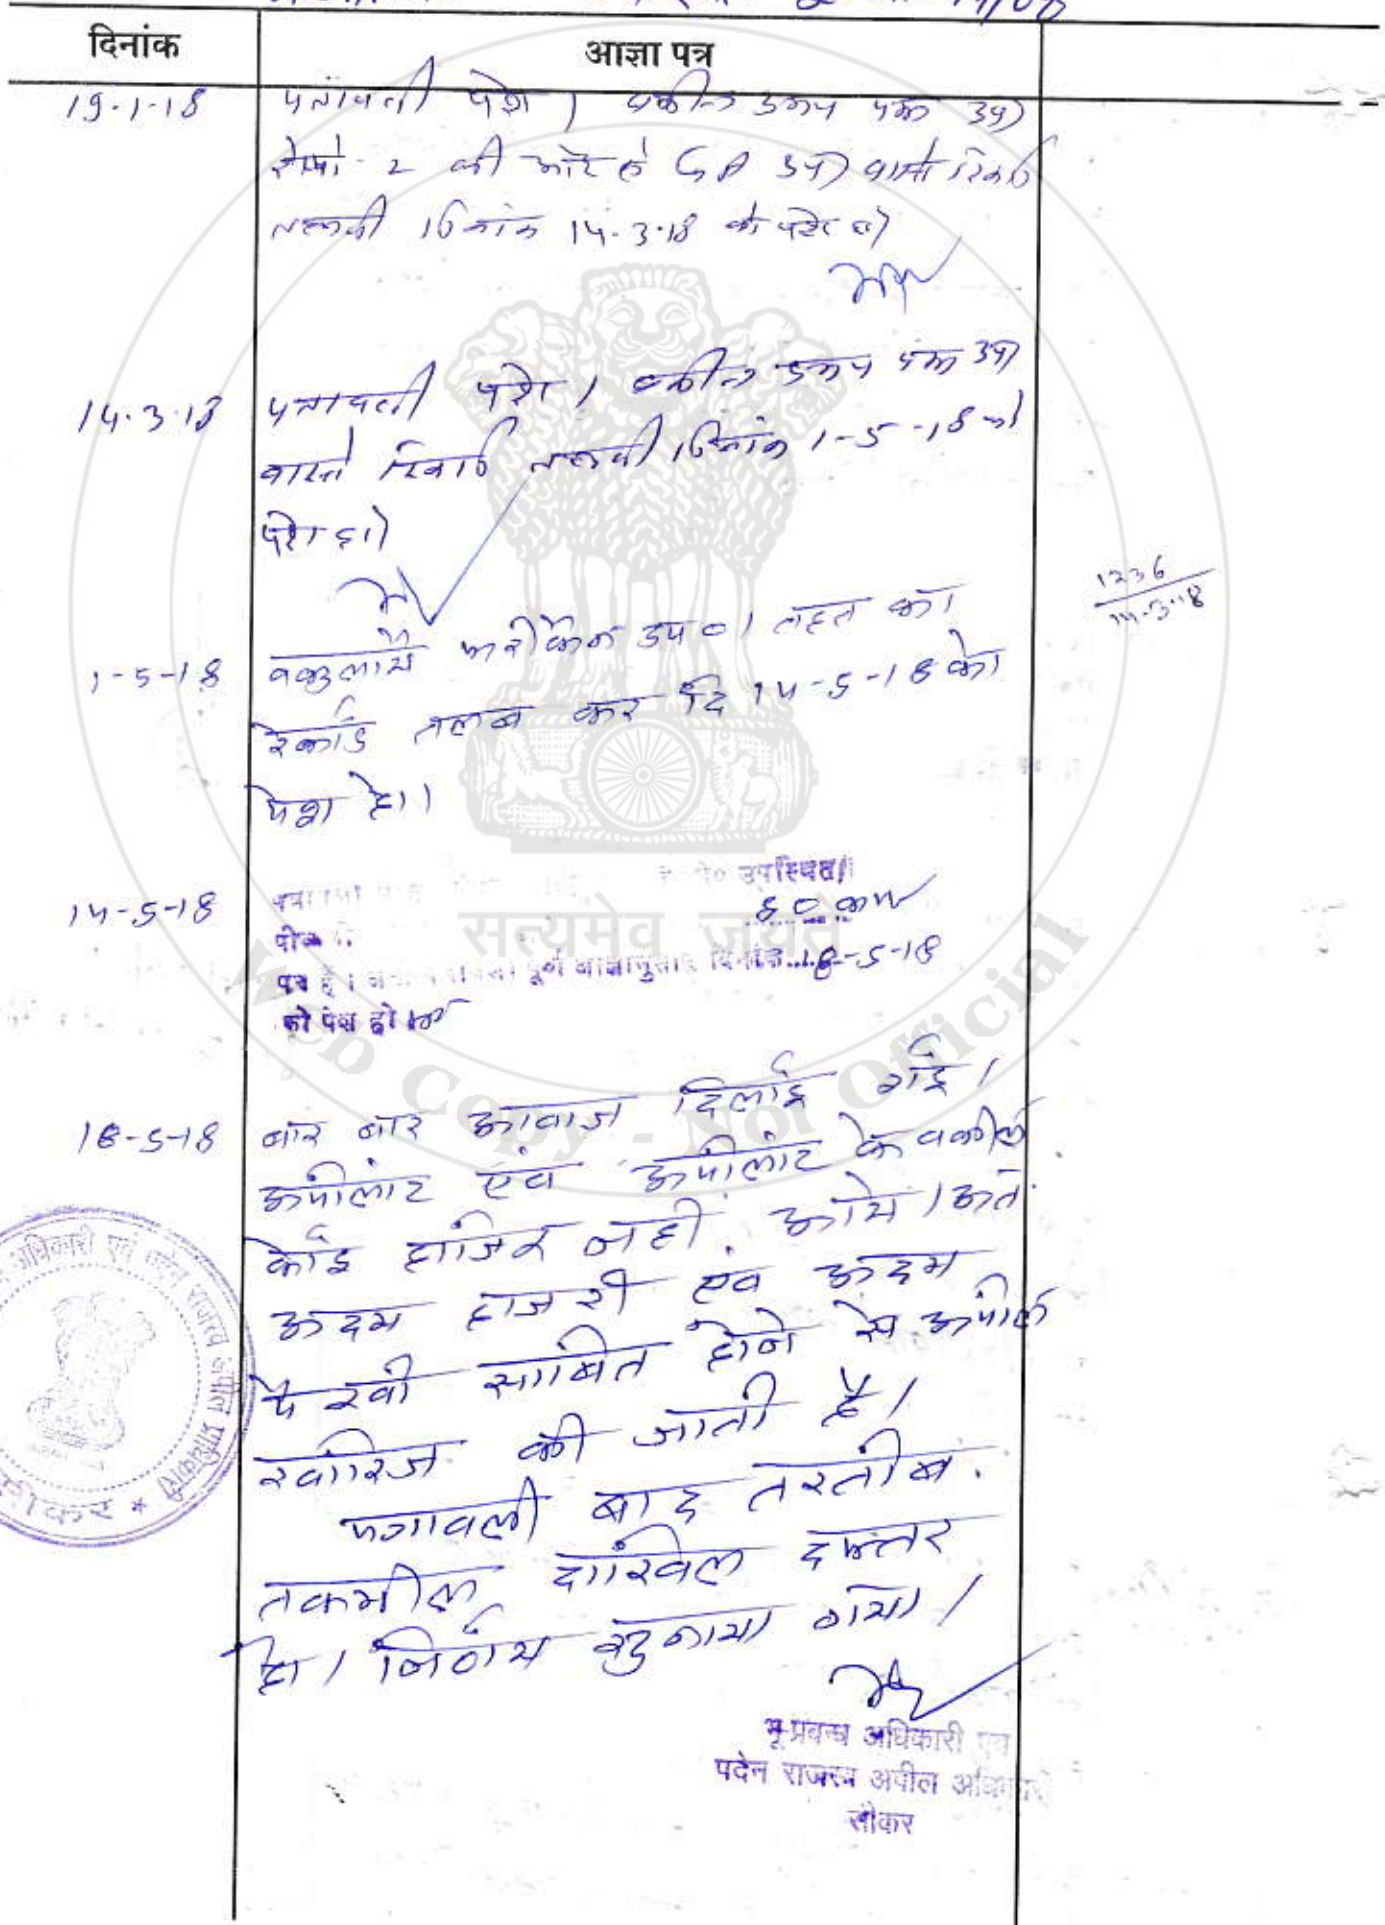 दिनांक
आज्ञा पत्र
19-1-18
पत्रावली पेश । वकील उभय पक्ष उप0
रेस्पो - 2 की ओर से GA उप0 वास्ते रिकार्ड
तलबी दिनांक 14-3-18 को पेश हो
14-3-18
पत्रावली पेश । वकील उभय पक्ष उप0
वास्ते रिकार्ड तलबी दिनांक 1-5-18 को
पेश हो
1236
14-3-18
1-5-18
वकुलाये फरीकैन उप0 । तहत का
रेकार्ड तलब कर दि 14-5-18 को
पेश हो।
14-5-18
उपस्थित।
पूर्व आज्ञानुसार दिनांक 18-5-18
को पेश हो
18-5-18
बार बार आवाज दिलाई गई ।
अपीलांट एवं अपीलांट के वकील
कोई हाजिर नही आये । अतः
अदम हाजरी एवं अदम
पैरवी साबित होने से अपील
खारिज की जाती है ।
पत्रावली बाद तरतीब
तकमील दाखिल दफ्तर
हो । निर्णय सुनाया गया ।
भू-प्रबन्ध अधिकारी एवं
पदेन राजस्व अपील अधिकारी
सीकर
अधिकारी एवं पदेन राजस्व अपील प्राधिकारी
सीकर *
सत्यमेव जयते
Web Copy - Not Official